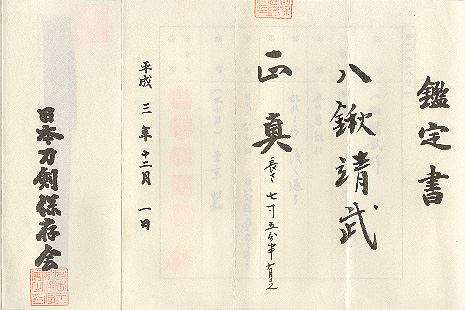 鑑定書
八鍬靖武
正真
長さ 七寸五分半
平成三年十二月一日
日本刀剣保存会